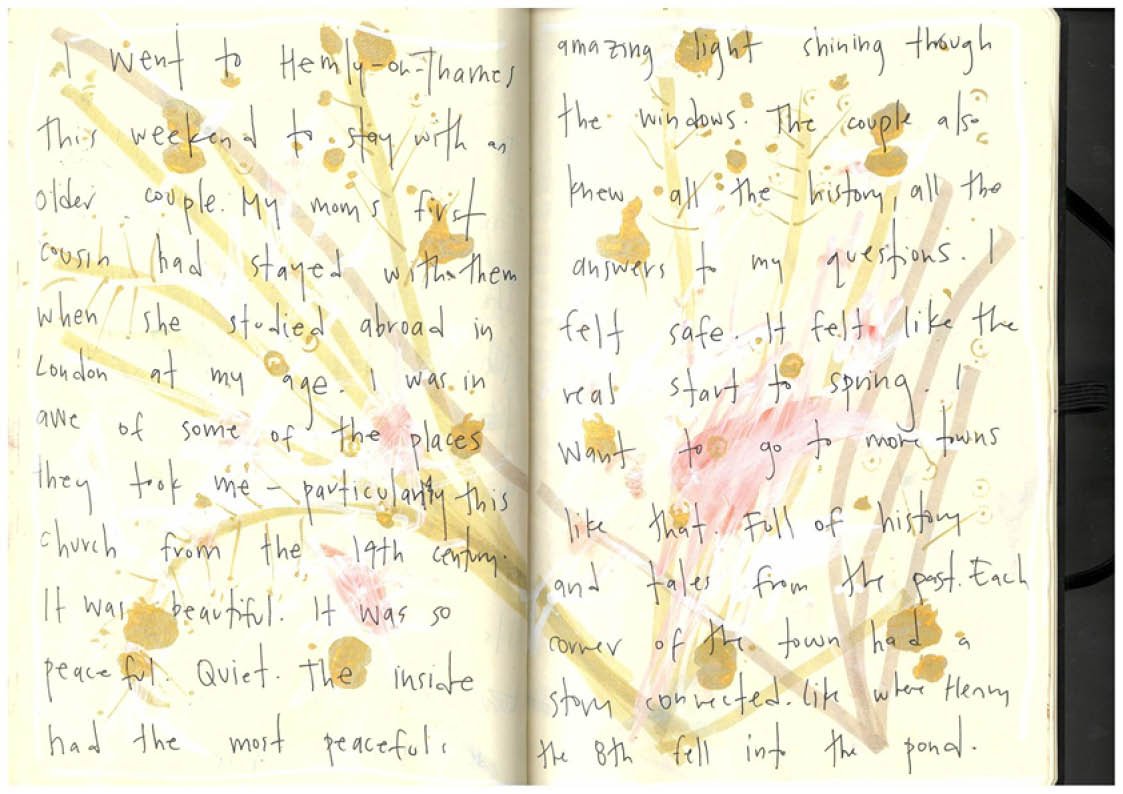 I went to Hemly-on-Thames
this weekend to stay with an
older couple. My mom's first
cousin had stayed with them
when she studied abroad in
London at my age. I was in
awe of some of the places
they took me - particularly this
church from the 14th century.
It was beautiful. It was so
peaceful. Quiet. The inside
had the most peaceful,
amazing light shining though
the windows. The couple also
knew all the history, all the
answers to my questions. I
felt safe. It felt like the
real start to spring. I
want to go to more towns
like that. Full of history
and tales from the past. Each
corner of the town had a
story connected. like where Henry
the 8th fell into the pond.